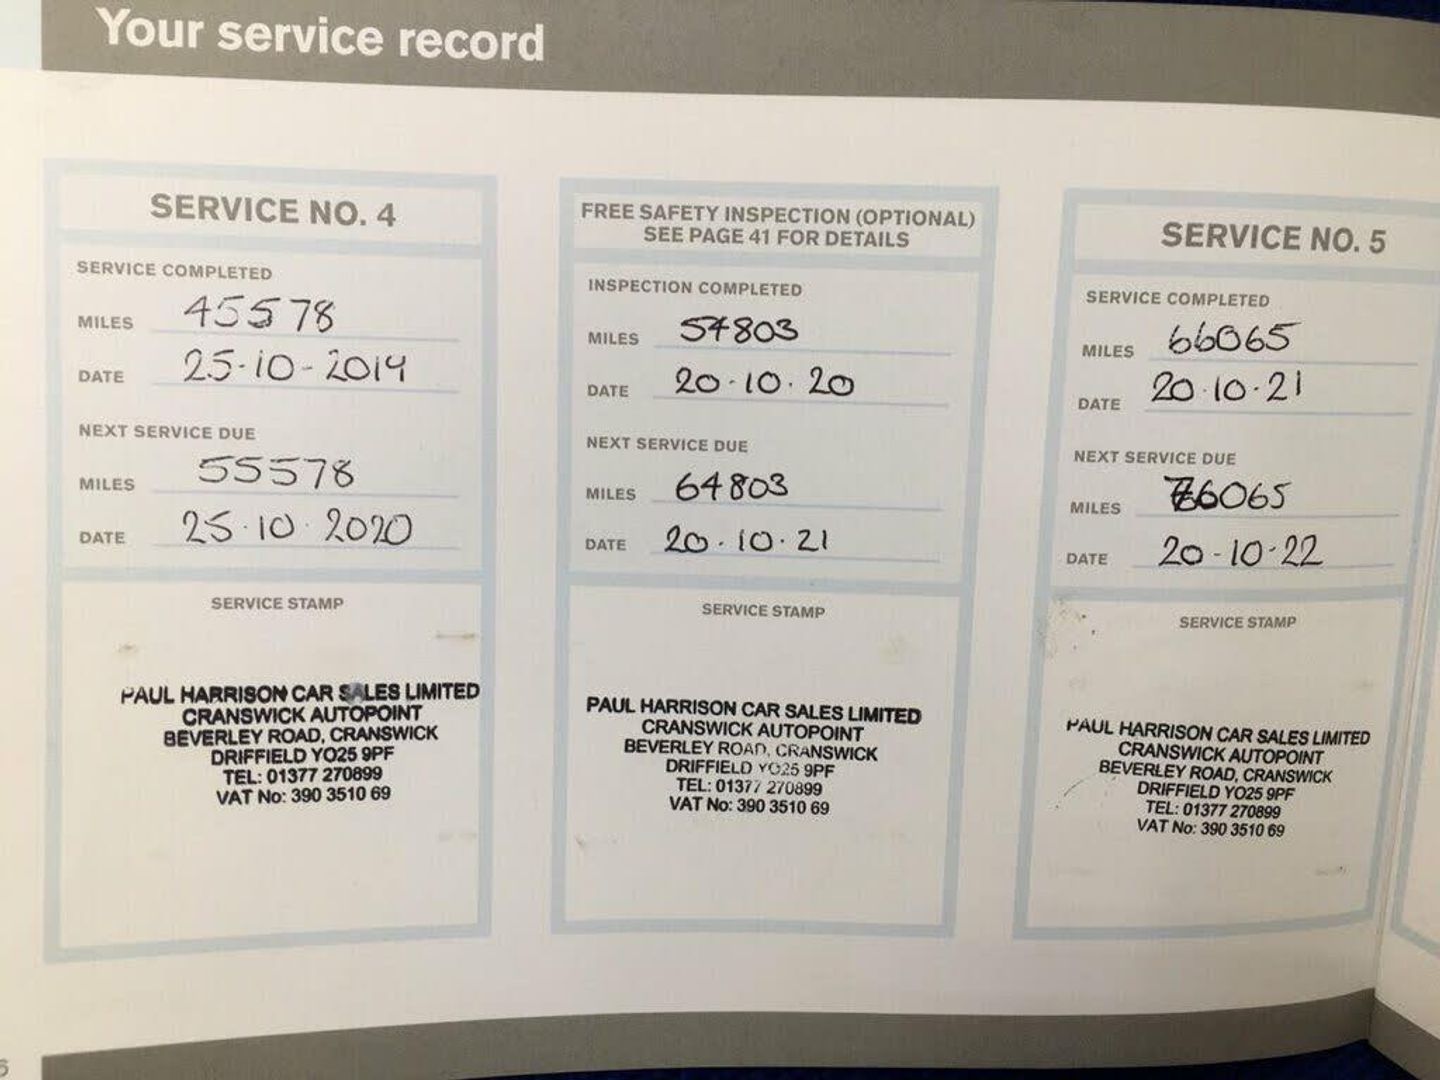 Your service record
SERVICE NO. 4
SERVICE COMPLETED
MILES 45578
DATE 25-10-2019
NEXT SERVICE DUE
MILES 55578
DATE 25-10 2020
SERVICE STAMP
PAUL HARRISON CAR SALES LIMITED
CRANSWICK AUTOPOINT
BEVERLEY ROAD, CRANSWICK
DRIFFIELD YO25 9PF
TEL: 01377 270899
VAT No: 390 3510 69
FREE SAFETY INSPECTION (OPTIONAL)
SEE PAGE 41 FOR DETAILS
INSPECTION COMPLETED
MILES 54803
DATE 20.10.20
NEXT SERVICE DUE
MILES 64803
DATE 20.10.21
SERVICE STAMP
PAUL HARRISON CAR SALES LIMITED
CRANSWICK AUTOPOINT
BEVERLEY ROAD, CRANSWICK
DRIFFIELD YO25 9PF
TEL: 01377 270899
VAT No: 390 3510 69
SERVICE NO. 5
SERVICE COMPLETED
MILES 66065
DATE 20.10.21
NEXT SERVICE DUE
MILES 76065
DATE 20-10-22
SERVICE STAMP
PAUL HARRISON CAR SALES LIMITED
CRANSWICK AUTOPOINT
BEVERLEY ROAD, CRANSWICK
DRIFFIELD YO25 9PF
TEL: 01377 270899
VAT No: 390 3510 69